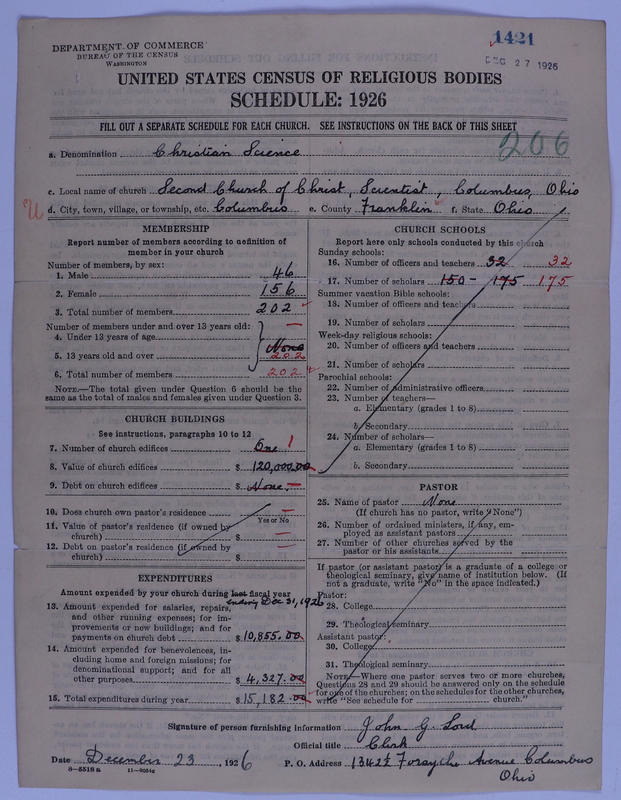 DEPARTMENT OF COMMERCE
BUREAU OF THE CENSUS
WASHINGTON
1421
DEC 27 1926
UNITED STATES CENSUS OF RELIGIOUS BODIES
SCHEDULE: 1926
FILL OUT A SEPARATE SCHEDULE FOR EACH CHURCH. SEE INSTRUCTIONS ON THE BACK OF THIS SHEET
206
a. Denomination Christian Science
c. Local name of church Second Church of Christ, Scientist, Columbus, Ohio
d. City, town, village, or township, etc. Columbus e. County Franklin f. State Ohio
MEMBERSHIP
Report number of members according to definition of
member in your church
Number of members, by sex:
1. Male 46
2. Female 156
3. Total number of members 202
Number of members under and over 13 years old:
4. Under 13 years of age None
5. 13 years old and over 202
6. Total number of members 202
NOTE.—The total given under Question 6 should be the
same as the total of males and females given under Question 3.
CHURCH BUILDINGS
See instructions, paragraphs 10 to 12
7. Number of church edifices One 1
8. Value of church edifices $ 120,000.00
9. Debt on church edifices $ None
10. Does church own pastor's residence
Yes or No
11. Value of pastor's residence (if owned by
church) $
12. Debt on pastor's residence (if owned by
church) $
EXPENDITURES
Amount expended by your church during last fiscal year
ending Dec 31, 1926
13. Amount expended for salaries, repairs,
and other running expenses; for im-
provements or new buildings; and for
payments on church debt $ 10,855.00
14. Amount expended for benevolences, in-
cluding home and foreign missions; for
denominational support; and for all
other purposes $ 4,327.00
15. Total expenditures during year $ 15,182.00
CHURCH SCHOOLS
Report here only schools conducted by this church
Sunday schools:
16. Number of officers and teachers 32 32
17. Number of scholars 150 - 175 175
Summer vacation Bible schools:
18. Number of officers and teachers
19. Number of scholars
Week-day religious schools:
20. Number of officers and teachers
21. Number of scholars
Parochial schools:
22. Number of administrative officers
23. Number of teachers—
a. Elementary (grades 1 to 8)
b. Secondary
24. Number of scholars—
a. Elementary (grades 1 to 8)
b. Secondary
PASTOR
25. Name of pastor None
(If church has no pastor, write "None")
26. Number of ordained ministers, if any, em-
ployed as assistant pastors
27. Number of other churches served by the
pastor or his assistants
If pastor (or assistant pastor) is a graduate of a college or
theological seminary, give name of institution below. (If
not a graduate, write "No" in the space indicated.)
Pastor:
28. College
29. Theological seminary
Assistant pastor:
30. College
31. Theological seminary
NOTE.—Where one pastor serves two or more churches,
Questions 28 and 29 should be answered only on the schedule
for one of the churches; on the schedules for the other churches,
write "See schedule for church."
Signature of person furnishing information John G. Lord
Official title Clerk
Date December 23, 1926 P. O. Address 1342½ Forsythe Avenue Columbus
Ohio
8-5518a 11-9034c